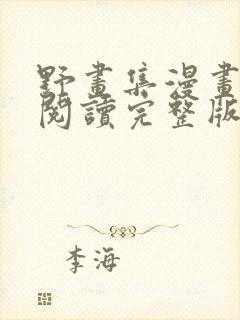 野畫集漫畫
閱讀完整版
李海